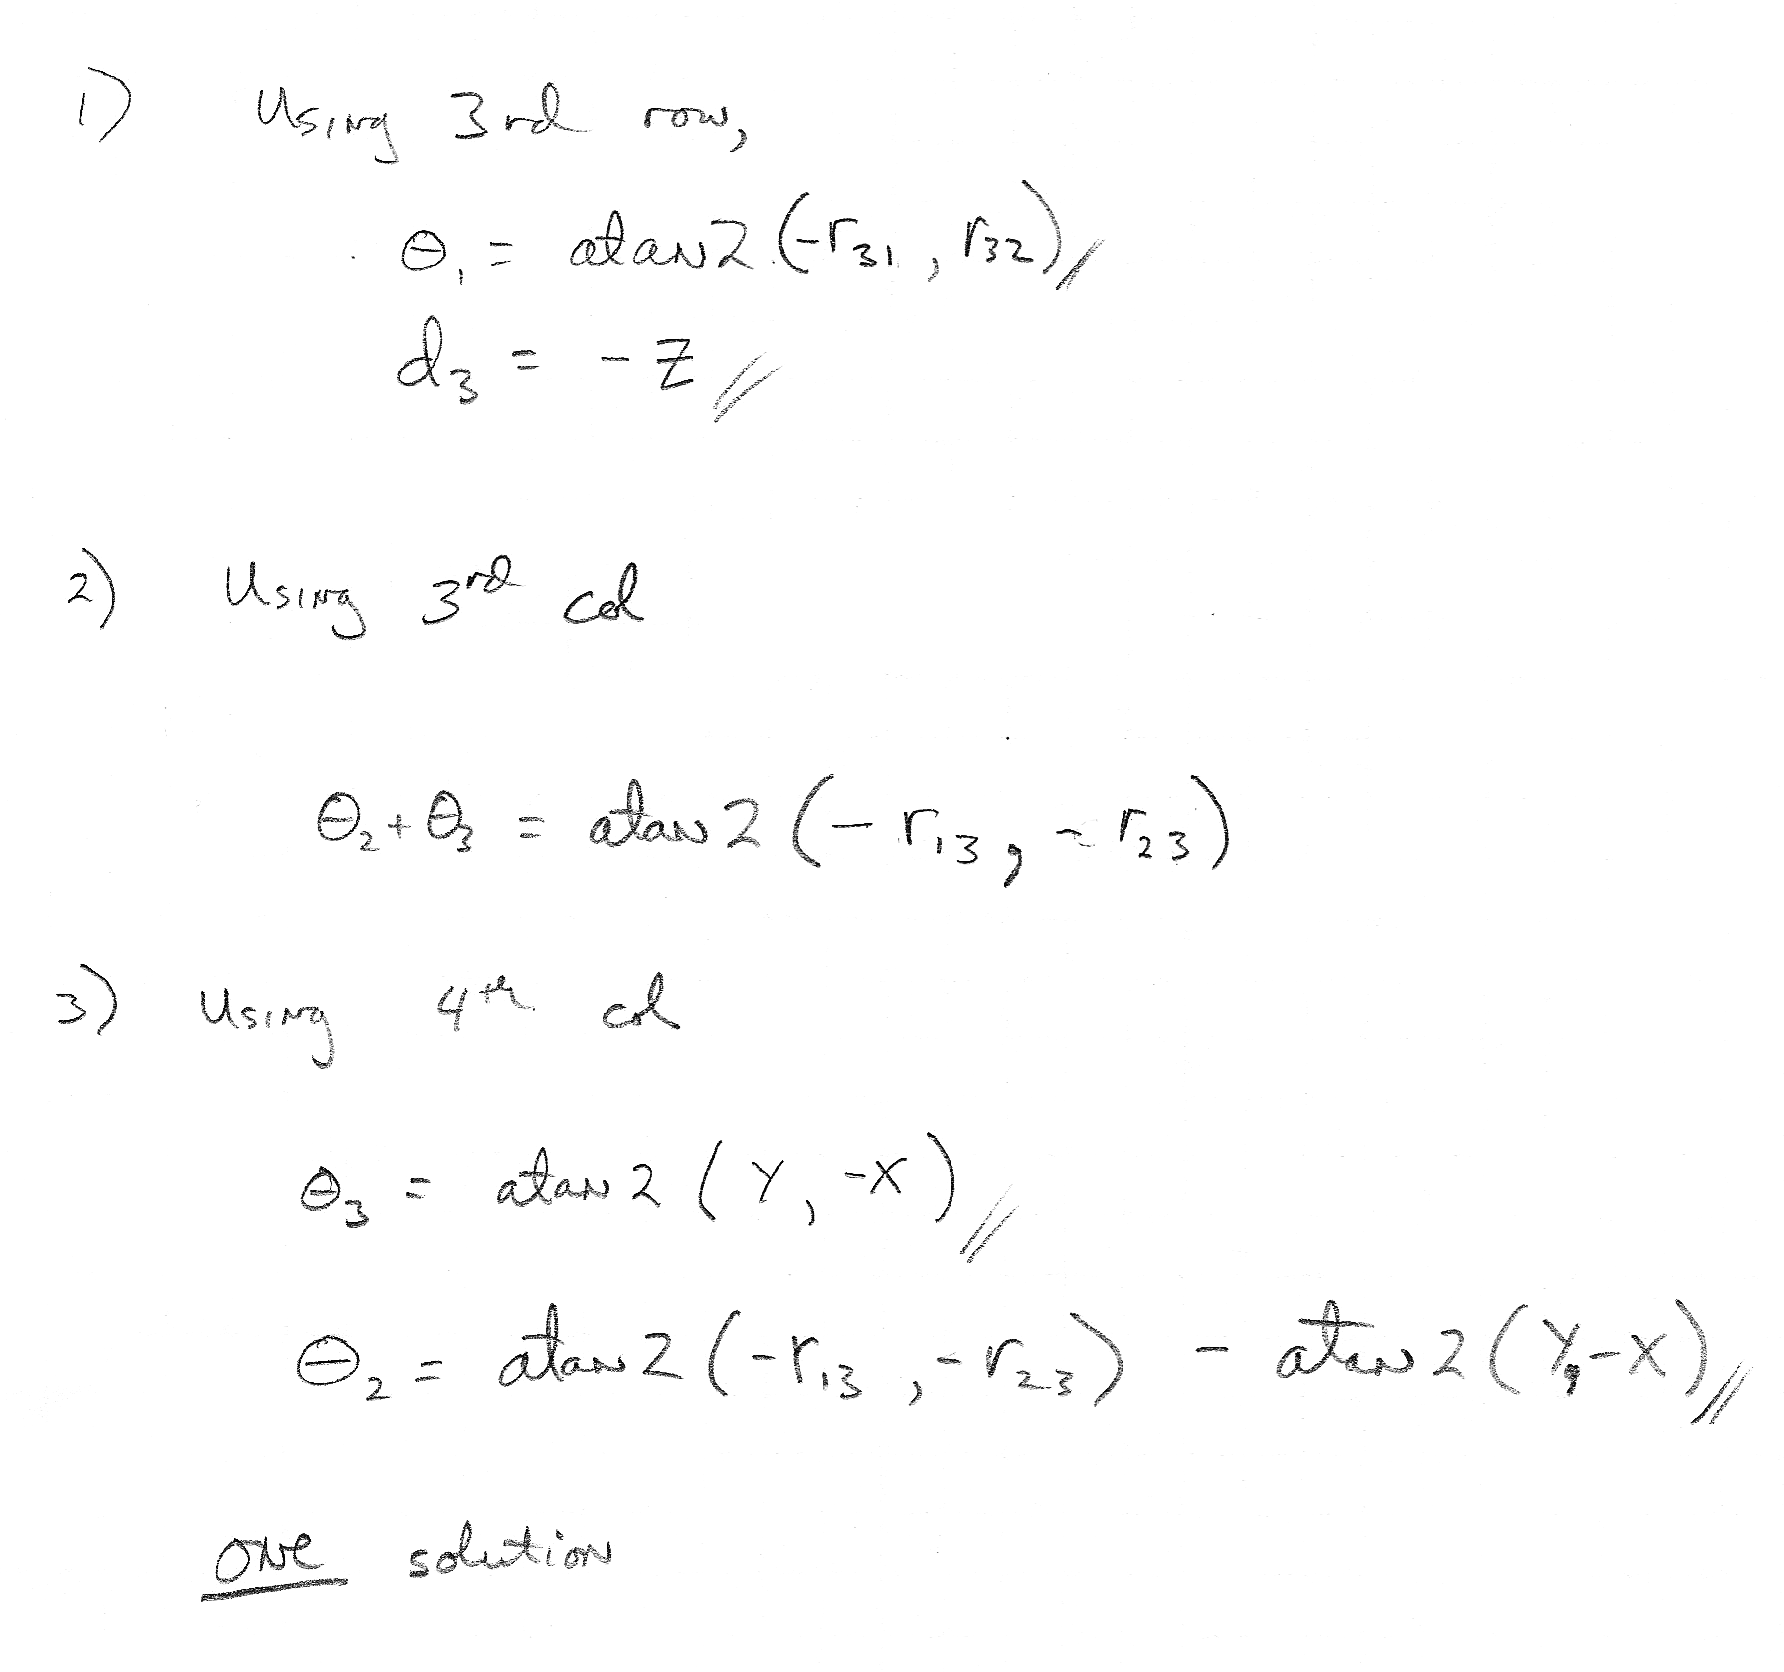 1) Using 3rd row,
θ₁ = atan2(-r₃₁, r₃₂)//
d₃ = -Z//
2) Using 3rd col
θ₂+θ₃ = atan2(-r₁₃, -r₂₃)
3) Using 4th col
θ₃ = atan2(Y, -X)//
θ₂ = atan2(-r₁₃, -r₂₃) - atan2(Y, -X)//
ONE solution